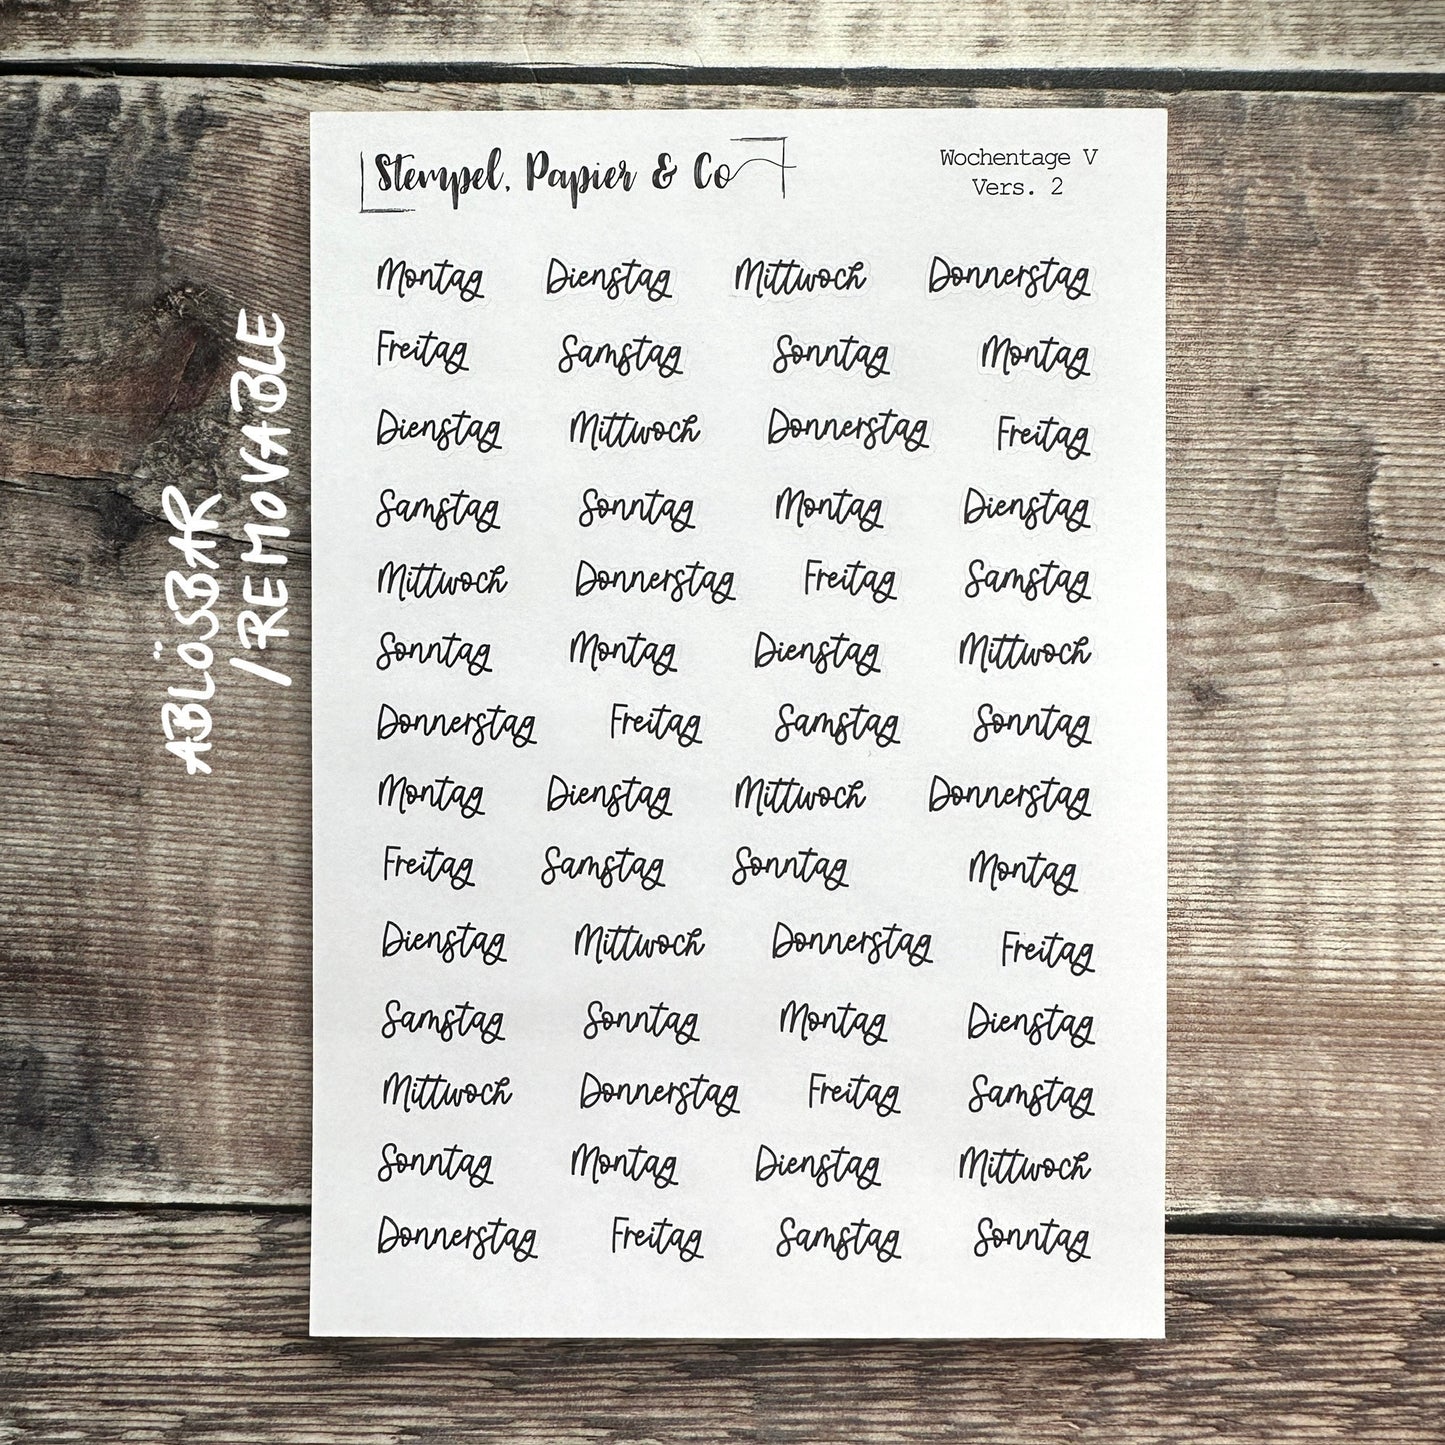 Stempel, Papier & Co
Wochentage V
Vers. 2
Montag Dienstag Mittwoch Donnerstag
Freitag Samstag Sonntag Montag
Dienstag Mittwoch Donnerstag Freitag
Samstag Sonntag Montag Dienstag
Mittwoch Donnerstag Freitag Samstag
Sonntag Montag Dienstag Mittwoch
Donnerstag Freitag Samstag Sonntag
Montag Dienstag Mittwoch Donnerstag
Freitag Samstag Sonntag Montag
Dienstag Mittwoch Donnerstag Freitag
Samstag Sonntag Montag Dienstag
Mittwoch Donnerstag Freitag Samstag
Sonntag Montag Dienstag Mittwoch
Donnerstag Freitag Samstag Sonntag
ABLÖSBAR
/REMOVABLE